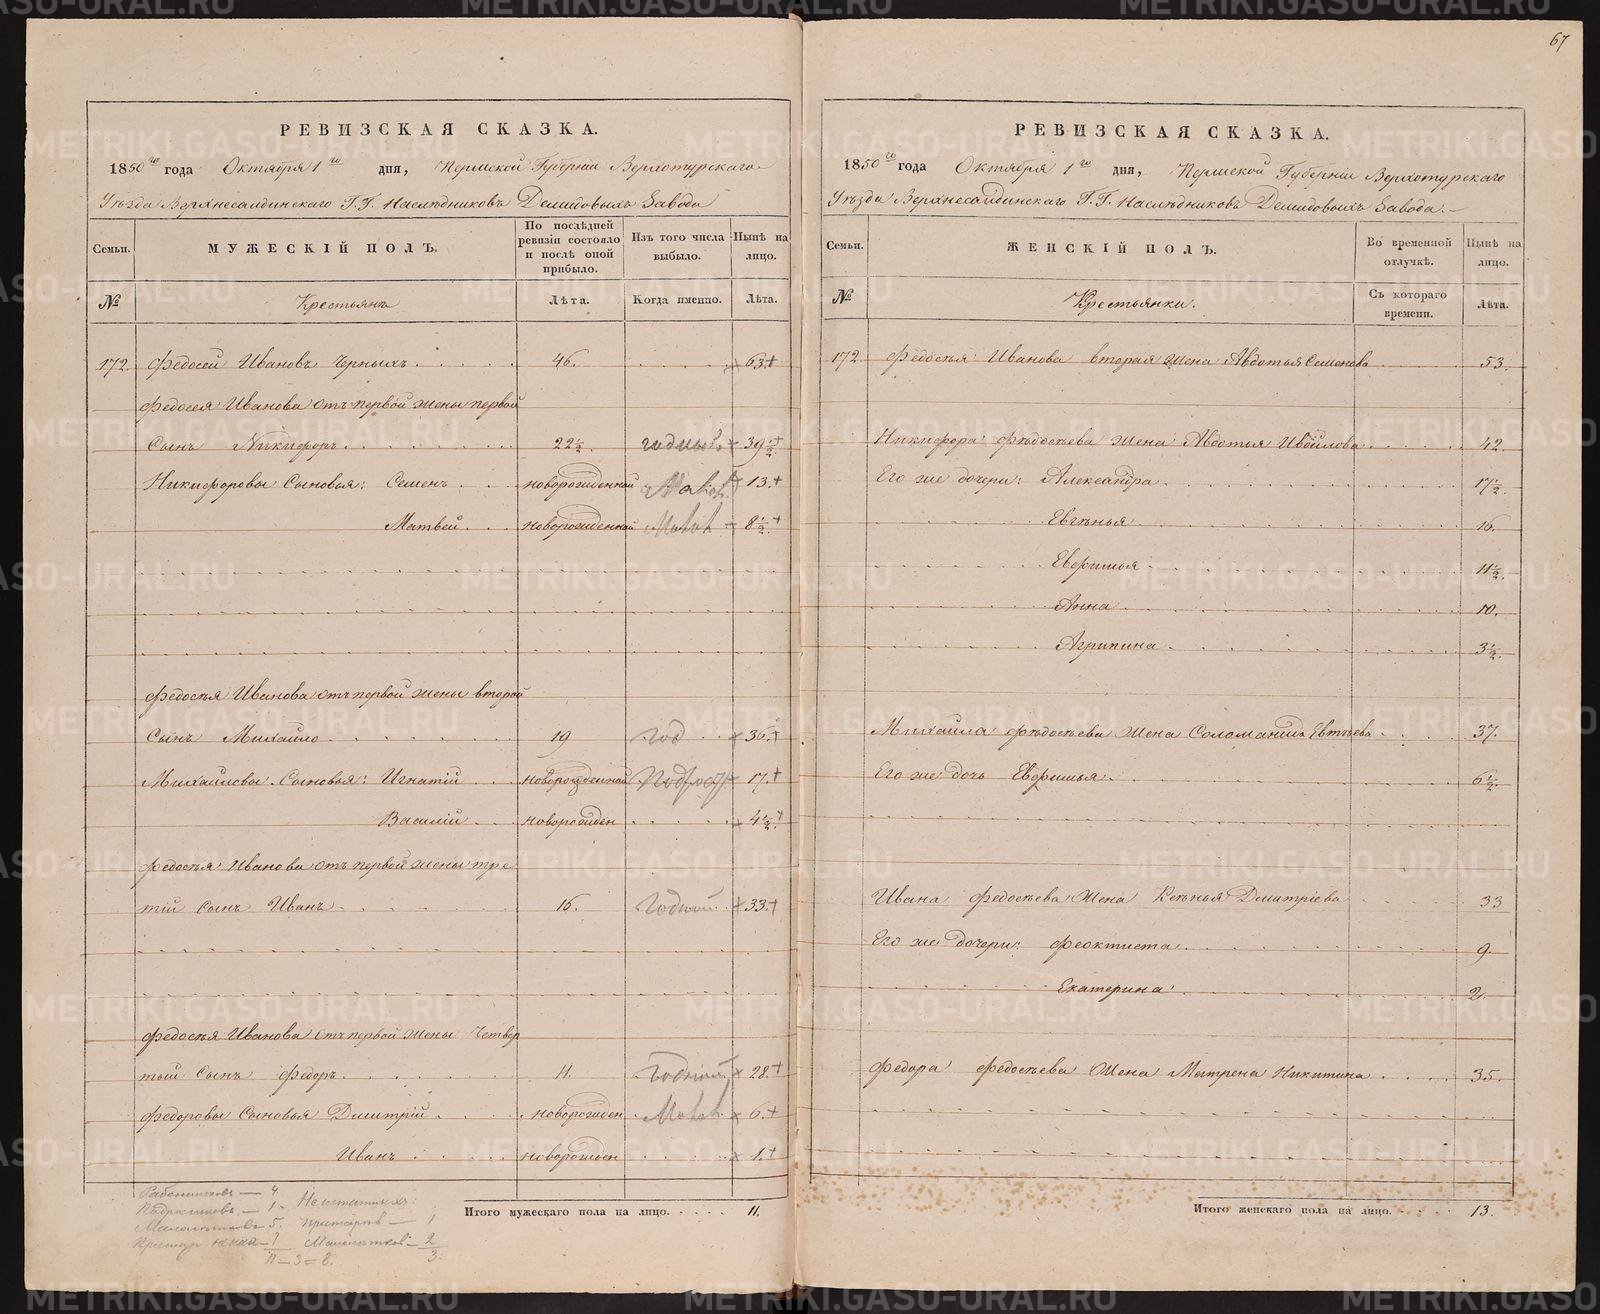 67
РЕВИЗСКАЯ СКАЗКА.
1850го года Октября 1го дня, Пермской Губерніи Верхотурскаго
Уѣзда Верхнесалдинскаго Г.Г. Наслѣдниковъ Демидовыхъ Завода
Семьи. МУЖЕСКІЙ ПОЛЪ. По послѣдней ревизіи состояло и послѣ оной прибыло. Изъ того числа выбыло. Нынѣ на лицо.
№ Крестьянъ Лѣта. Когда именно. Лѣта.
172. Федосей Ивановъ Черныхъ 46. 63+
Федосея Иванова отъ первой жены первой
сынъ Никифоръ 22½. годный + 39½+
Никифоровы сыновья: Семенъ новорожденной Малол. 13.+
Матвей новорожденной Малол. 8½.+
Федосѣя Иванова отъ первой жены второй
сынъ Михайло 19 год 36.+
Михайловы сыновья: Игнатій новорожденной Подрост. 17.+
Василій новорожден 4½.+
Федосѣя Иванова отъ первой жены тре
тій сынъ Иванъ 16. Годной +33.+
Федосѣя Иванова отъ первой жены Четвер
тый сынъ Федоръ 11. Годной 28.+
Федоровы сыновья Дмитрій новорожден Малол. 6.+
Иванъ новорожден 1.+
Работниковъ — 4.
Подростковъ — 1. Неистатныхъ:
Малолѣтковъ — 5. престарѣл — 1
— 1 Малолѣтков — 2
11 — 3 = 8. 3.
Итого мужескаго пола на лицо. 11.
РЕВИЗСКАЯ СКАЗКА.
1850го года Октября 1го дня, Пермской Губерніи Верхотурскаго
Уѣзда Верхнесалдинскаго Г.Г. Наслѣдниковъ Демидовыхъ Завода.
Семьи. ЖЕНСКІЙ ПОЛЪ. Во временной отлучкѣ. Нынѣ на лицо.
№ Крестьянки. Съ котораго времени. Лѣта.
172 Федосѣя Иванова вторая жена Авдотья Семенова 53.
Никифора Федосѣева жена Авдотья 42.
Его же дочери: Александра 17½.
Евгенья 16.
Евфимья 11½.
Анна 10.
Агрипина 3½.
Михайла Федосѣева жена Соломанида Евтѣева 37.
Его же дочь Евфимья 6½.
Ивана Федосѣева жена Ксенья Дмитріева 33
Его же дочери: Феоктиста 9.
Екатерина 2.
Федора Федосѣева жена Матрена Никитина 35.
Итого женскаго пола на лицо. 13.
METRIKI.GASO-URAL.RU